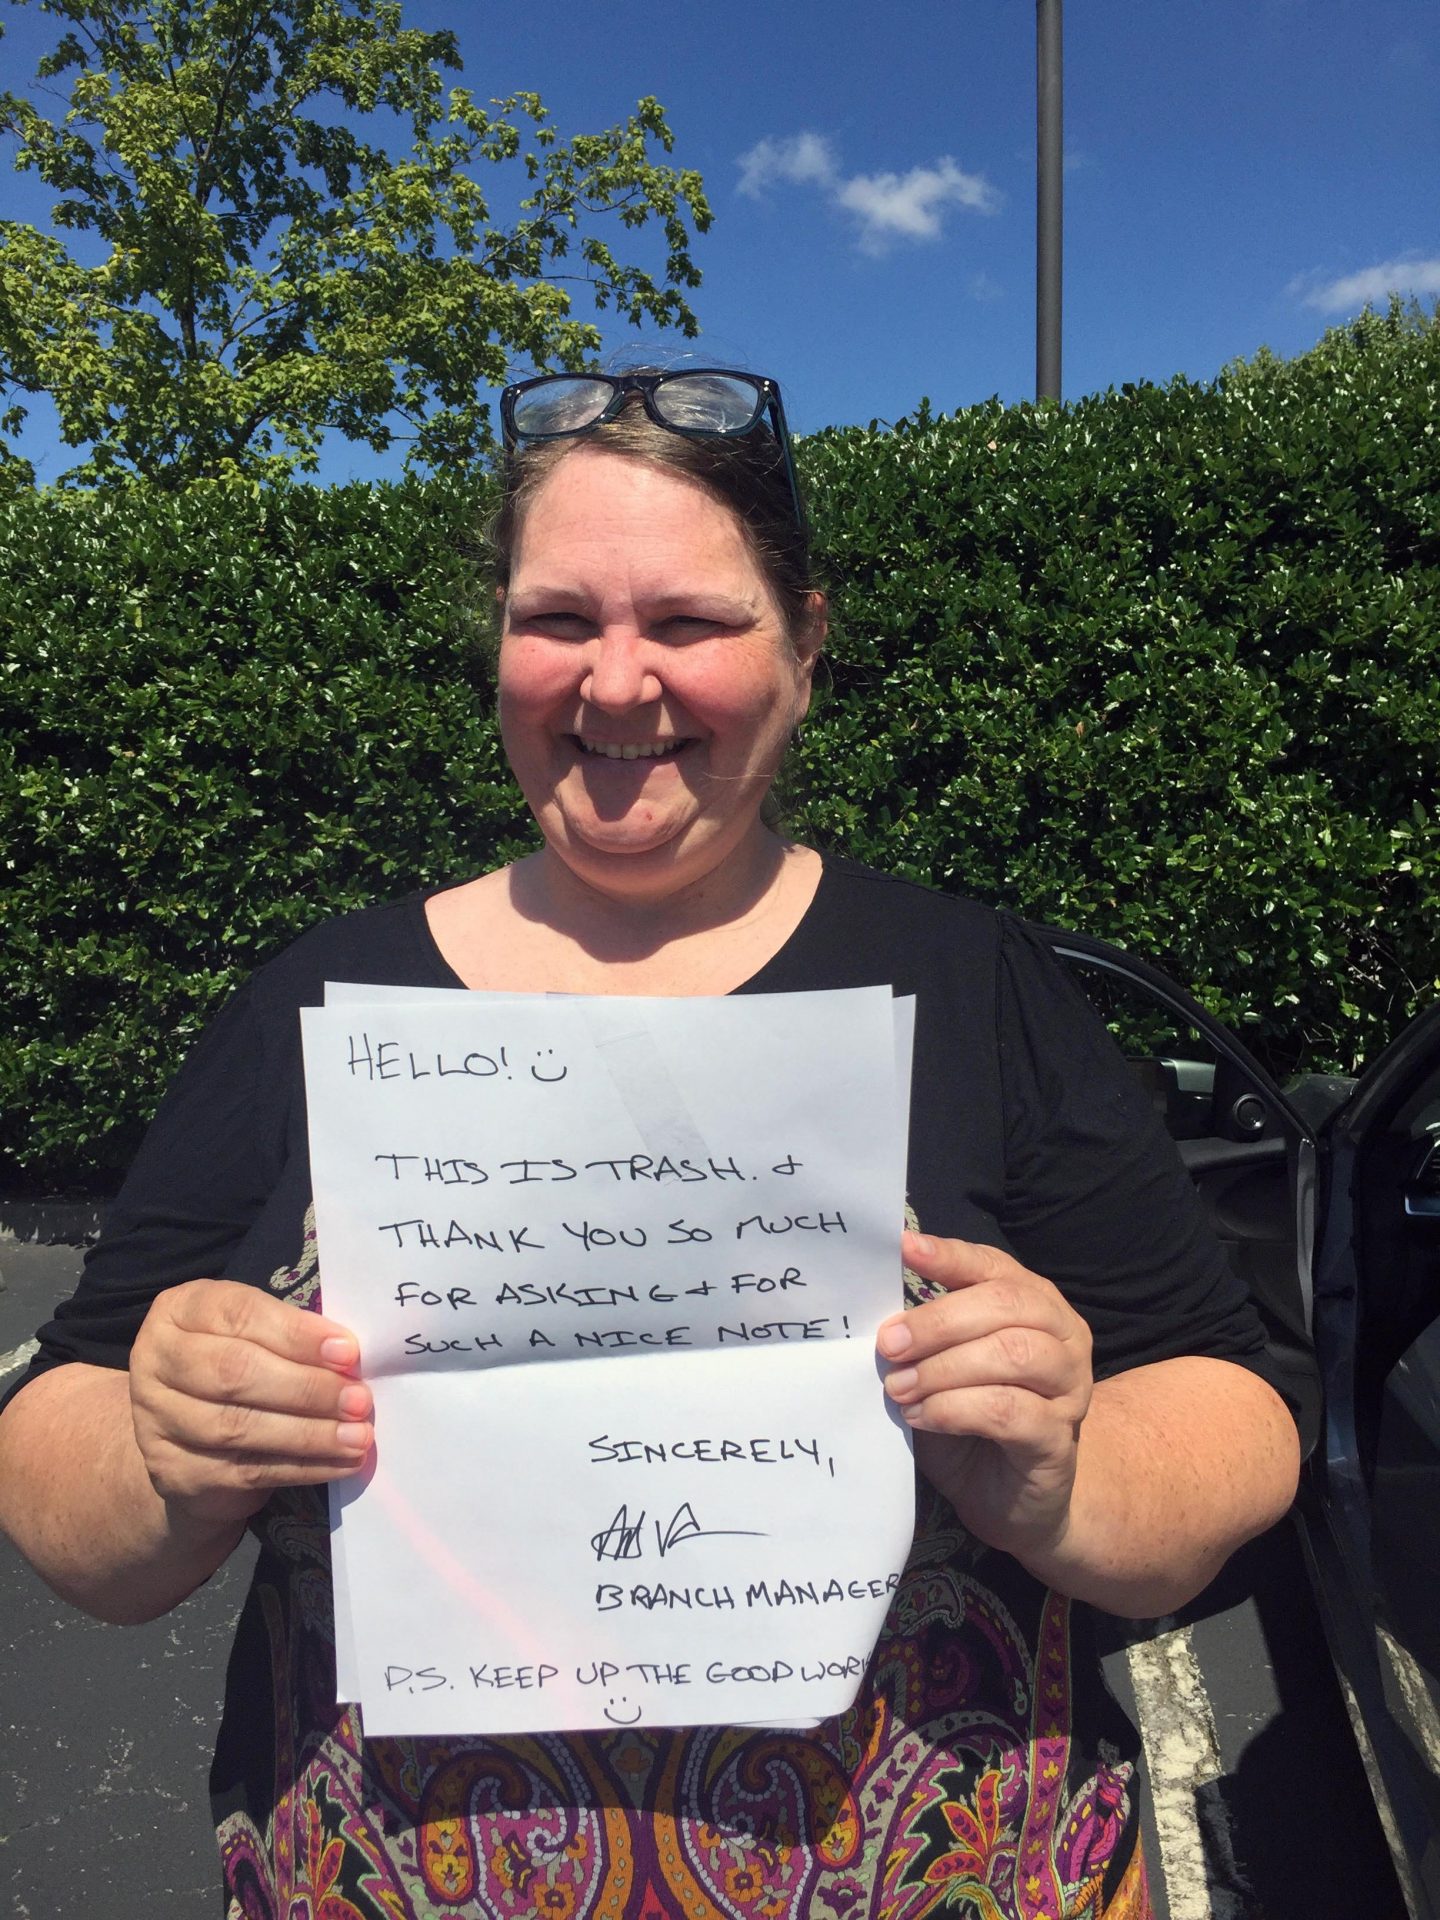 HELLO! :)
THIS IS TRASH. &
THANK YOU SO MUCH
FOR ASKING & FOR
SUCH A NICE NOTE!
SINCERELY,
BRANCH MANAGER
P.S. KEEP UP THE GOOD WORK
:)